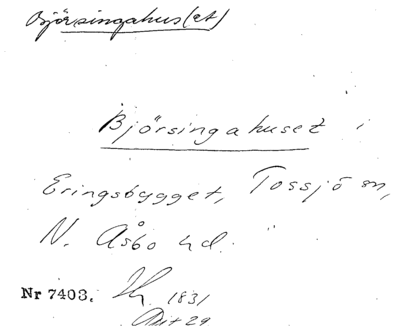 Björsingahus(et)
Björsingahuset i
Eringsbygget, Tossjö sn,
N. Åsbo hd.
Nr 7403. 1831
29